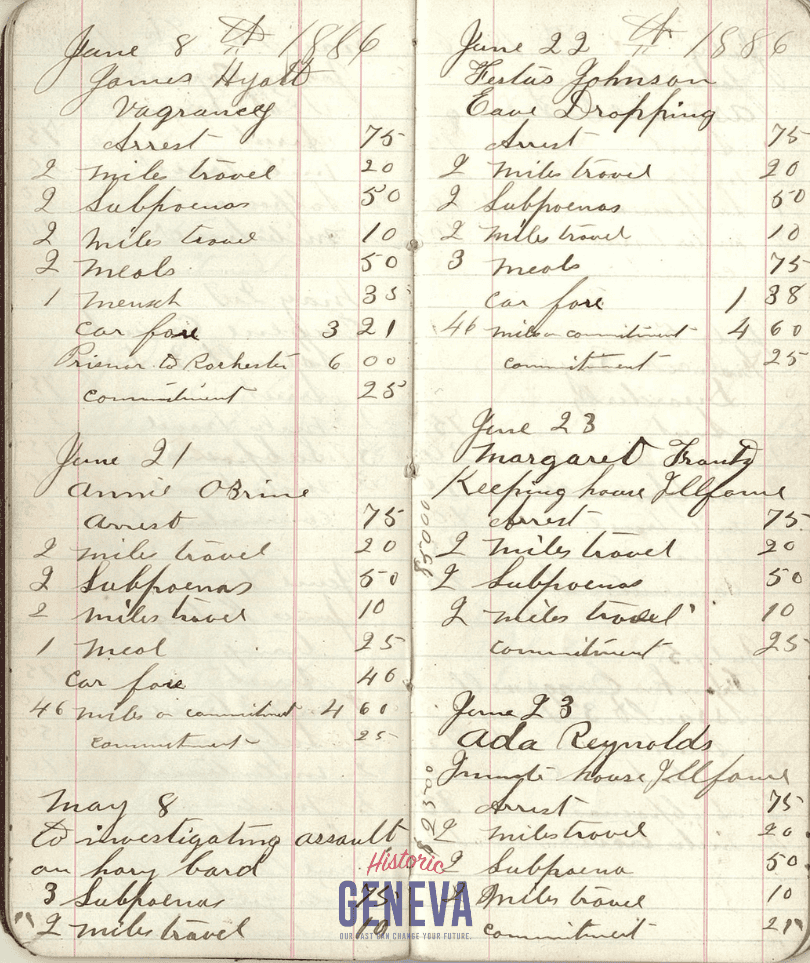 June 8 th 1886
James Hyatt
Vagrancy
Arrest 75
2 miles travel 20
2 Subpoenas 50
2 miles travel 10
2 meals 50
1 35
Car fare 3 21
to Rochester 6 00
commitment 25
June 21
Annie OBrine
Arrest 75
2 miles travel 20
2 Subpoenas 50
2 miles travel 10
1 meal 25
Car fare 46
46 miles on commitment 4 60
commitment 25
May 8
to investigating assault
on
3 Subpoenas 75
2 miles travel 10
June 22 th 1886
Festus Johnson
Eave Dropping
Arrest 75
2 miles travel 20
2 Subpoenas 50
2 miles travel 10
3 meals 75
Car fare 1 38
46 miles on commitment 4 60
commitment 25
June 23
Margaret
Keeping house Illfame
Arrest 75
2 miles travel 20
2 Subpoenas 50
2 miles travel 10
commitment 25
June 23
Ada Reynolds
Inmate house Illfame
Arrest 75
2 miles travel 20
2 Subpoena 50
2 Miles travel 10
commitment
Historic
GENEVA
OUR PAST CAN CHANGE YOUR FUTURE.